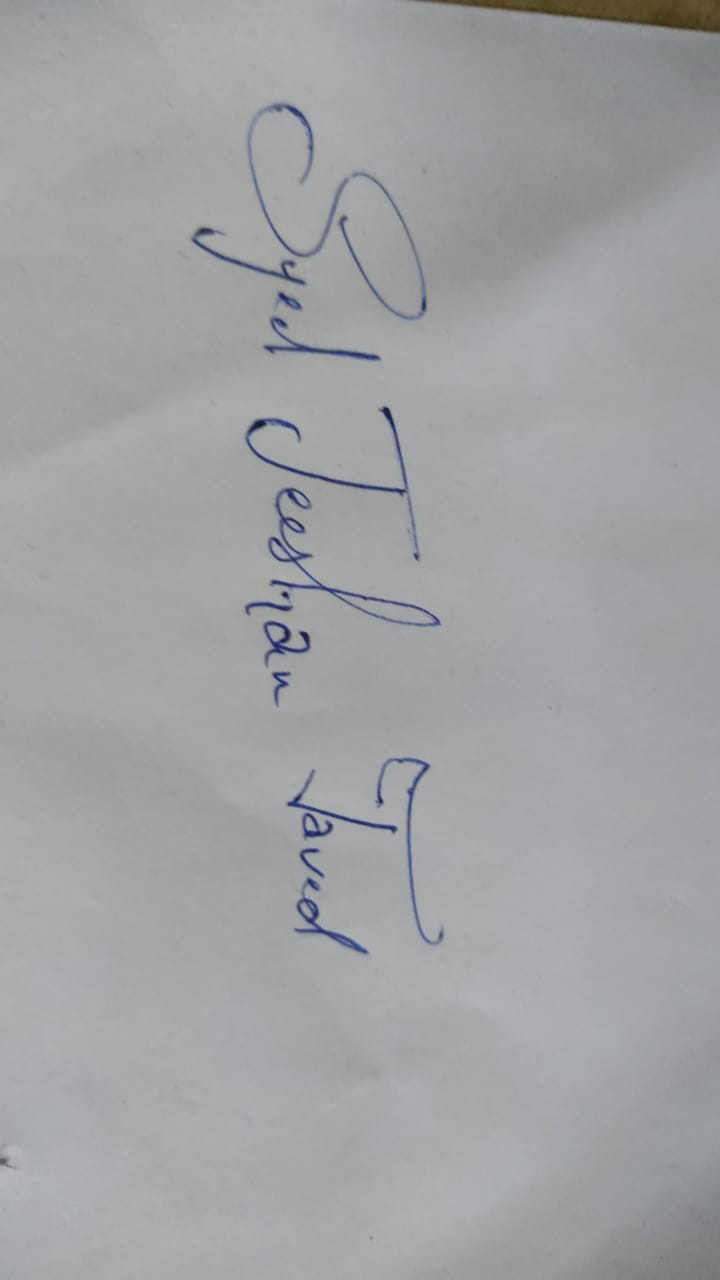 Syed Jeeshan Javed